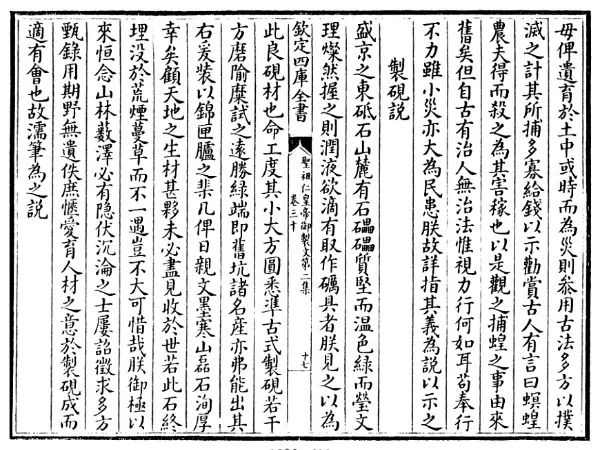 毋俾遺育於土中或時而為災則叅用古法多方以撲
滅之計其所捕多寡給錢以示勸賞古人有言曰螟蝗
農夫得而殺之為其害稼也以是觀之捕蝗之事由來
舊矣但自古有治人無治法惟視力行何如耳苟奉行
不力雖小災亦大為民患朕故詳指其義為說以示之
製硯說
盛京之東砥石山麓有石礧礧質堅而温色緑而瑩文
理燦然握之則潤液欲滴有取作礪具者朕見之以為
欽定四庫全書
聖祖仁皇帝御製文第二集
卷三十
十七
此良硯材也命工度其小大方圓悉準古式製硯若干
方磨隃糜試之遠勝緑端即舊坑諸名産亦弗能出其
右爰裝以錦匣臚之棐几俾日親文墨寒山磊石洵厚
幸矣顧天地之生材甚夥未必盡見收於世若此石終
埋没於荒煙蔓草而不一遇豈不大可惜哉朕御極以
來恒念山林藪澤必有隐伏沉淪之士屢詔徵求多方
甄錄用期野無遺佚庶愜愛育人材之意於製硯成而
適有會也故濡筆為之說